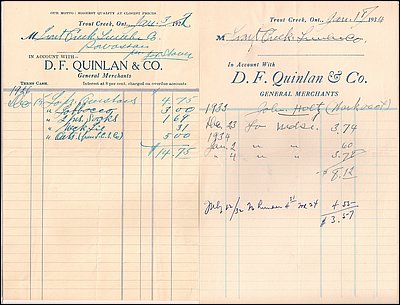 OUR MOTTO: HIGHEST QUALITY AT CLOSEST PRICES
Trout Creek, Ont., Jan. 3rd
M Trout Creek Lumber Co.
Powassan
IN ACCOUNT WITH
D. F. QUINLAN & CO.
General Merchants
TERMS CASH. Interest at 8 per cent. charged on overdue accounts
Dec 19 To 4.75
" Tobacco 3.00
" 2 prs Socks 1.69
" Neck Tie 31
" 5.00
$14.75
Trout Creek, Ont., Jan. 17 1934
M Trout Creek Lumber Co.
In Account With
D. F. Quinlan & Co.
GENERAL MERCHANTS
1933 John Holt
Dec 23 To mdse. 3.74
1934
Jan 2 " " 60
" 4 " " 3.78
8.12
4.55
$3.57